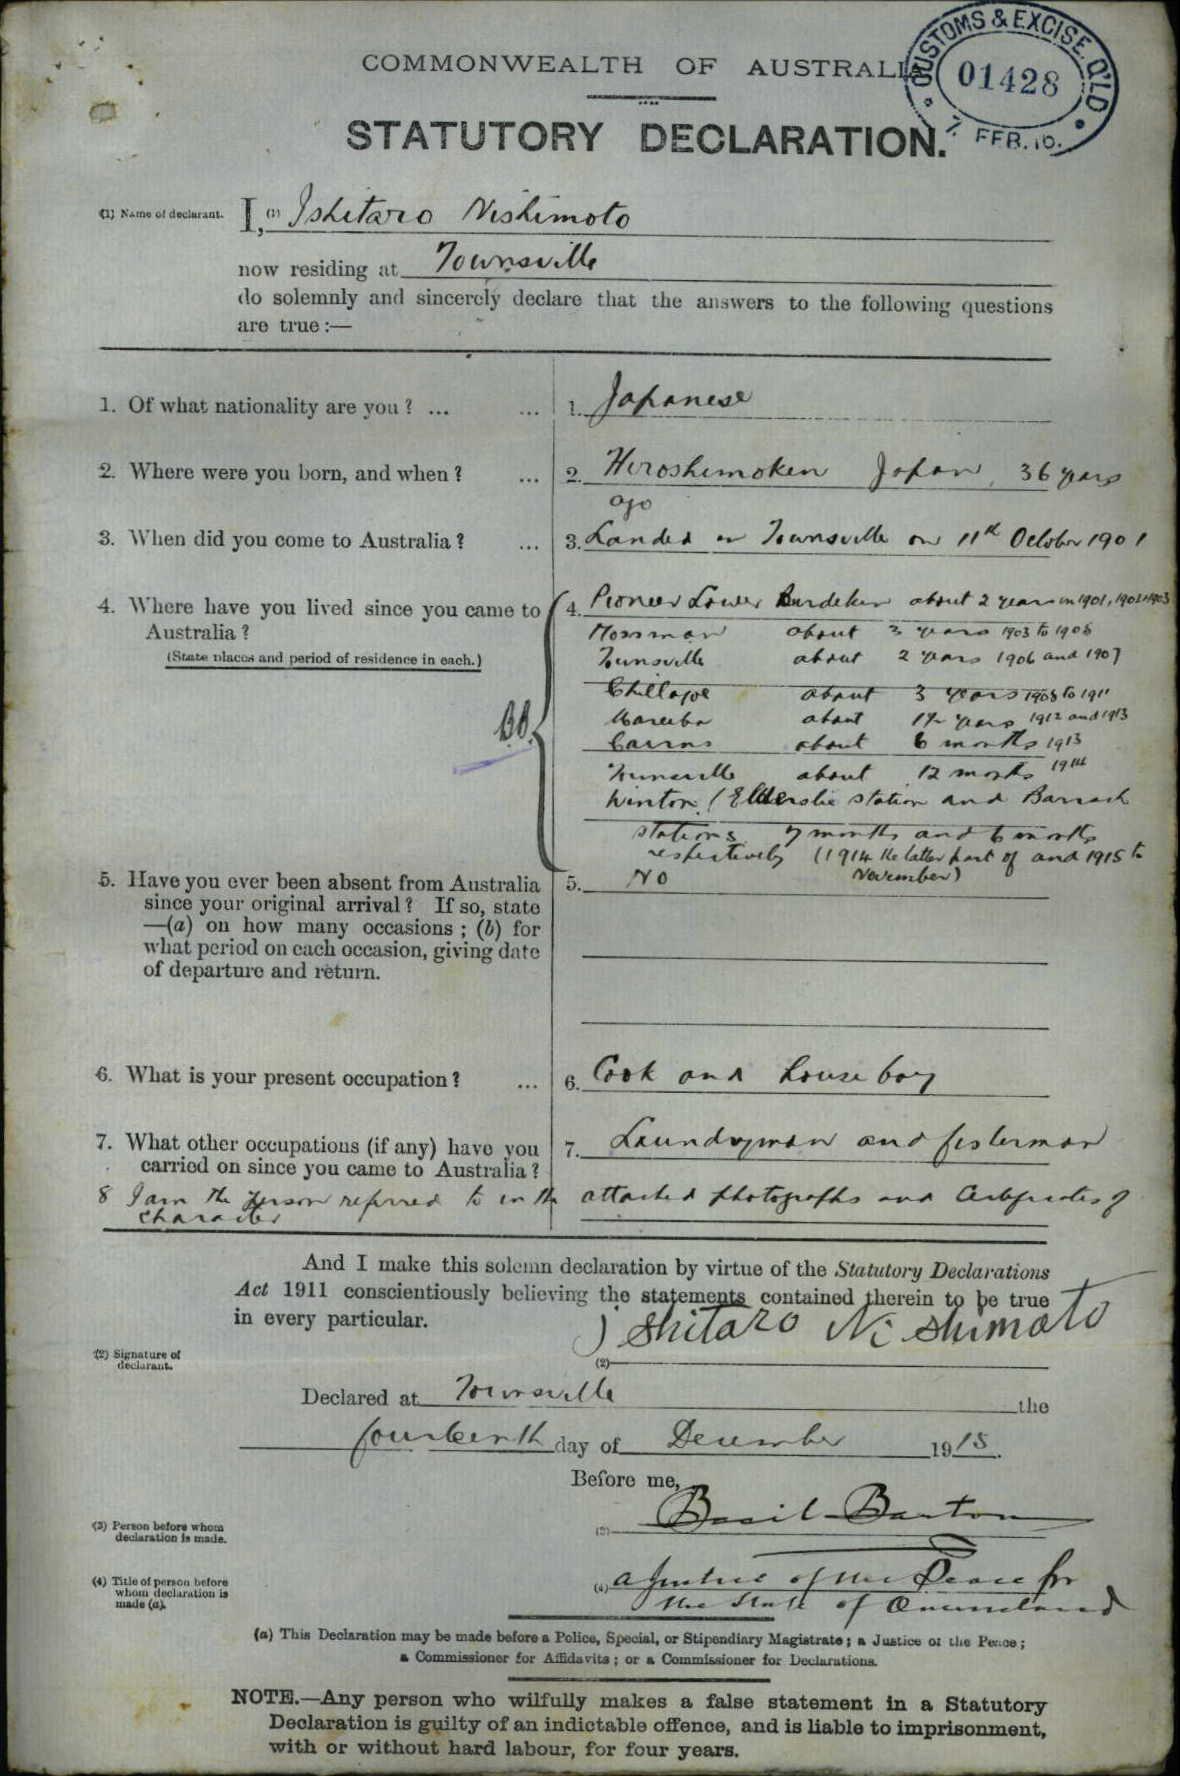 CUSTOMS & EXCISE. Q'LD
01428
7. FEB. 16.
COMMONWEALTH OF AUSTRALIA
STATUTORY DECLARATION.
(1) Name of declarant. I, (1) Ishitaro Nishimoto
now residing at Townsville
do solemnly and sincerely declare that the answers to the following questions
are true :—
1. Of what nationality are you ? ... ... 1. Japanese
2. Where were you born, and when ? ... 2. Hiroshimoken Japan, 36 years
ago
3. When did you come to Australia ? ... 3. Landed in Townsville on 11th October 1901
4. Where have you lived since you came to 4. Pioneer Lower Burdekin about 2 years in 1901, 1902 & 1903
Australia ? Mossman about 3 years 1903 to 1906
(State places and period of residence in each.) Townsville about 2 years 1906 and 1907
Chillagoe about 3 years 1908 to 1911
BB. Mareeba about 1½ years 1912 and 1913
Cairns about 6 months 1913
Townsville about 12 months 1914
Winton (Elderslie station and Barrack
stations 7 months and 6 months
respectively (1914 the latter part of and 1915 to
November)
5. Have you ever been absent from Australia 5. No
since your original arrival ? If so, state
—(a) on how many occasions ; (b) for
what period on each occasion, giving date
of departure and return.
6. What is your present occupation ? ... 6. Cook and house boy
7. What other occupations (if any) have you 7. Laundryman and fisherman
carried on since you came to Australia ?
8 I am the person referred to in the attached photographs and Certificates of
character
And I make this solemn declaration by virtue of the Statutory Declarations
Act 1911 conscientiously believing the statements contained therein to be true
in every particular.
(2) Signature of
declarant. (2) Ishitaro Nishimoto
Declared at Townsville the
fourteenth day of December 1915.
Before me,
(3) Person before whom
declaration is made. (3) Basil Barton
(4) Title of person before
whom declaration is
made (a). (4) a Justice of the Peace for
the State of Queensland
(a) This Declaration may be made before a Police, Special, or Stipendiary Magistrate ; a Justice of the Peace ;
a Commissioner for Affidavits ; or a Commissioner for Declarations.
NOTE.—Any person who wilfully makes a false statement in a Statutory
Declaration is guilty of an indictable offence, and is liable to imprisonment,
with or without hard labour, for four years.